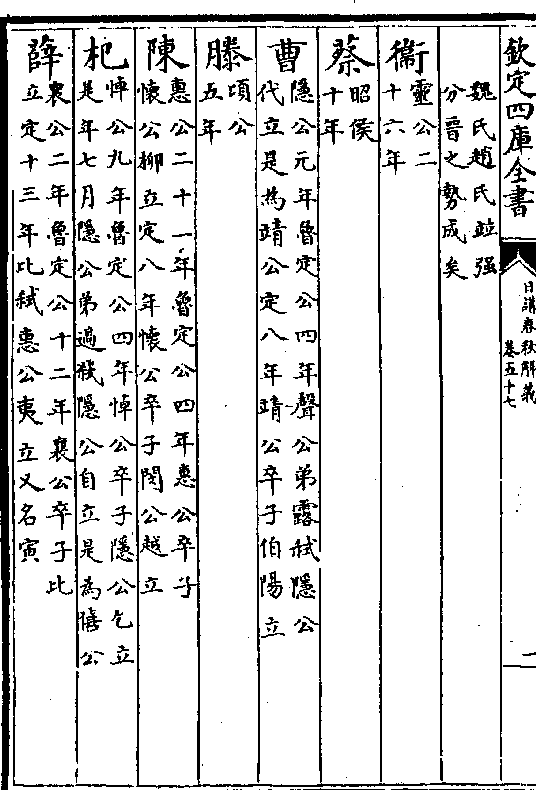 欽定四庫全書
日講春秋解義
卷五十七
一
魏氏趙氏竝强
分晉之勢成矣
衞
靈公二
十六年
蔡
昭侯
十年
曹
隱公元年魯定公四年聲公弟露弑隱公
代立是為靖公定八年靖公卒子伯陽立
滕
頃公
五年
陳
惠公二十一年魯定公四年惠公卒子
懷公柳立定八年懷公卒子閔公越立
杞
悼公九年魯定公四年悼公卒子隱公乞立
是年七月隱公弟過弑隱公自立是為僖公
薛
襄公二年魯定公十二年襄公卒子比
立定十三年比弑惠公夷立又名寅